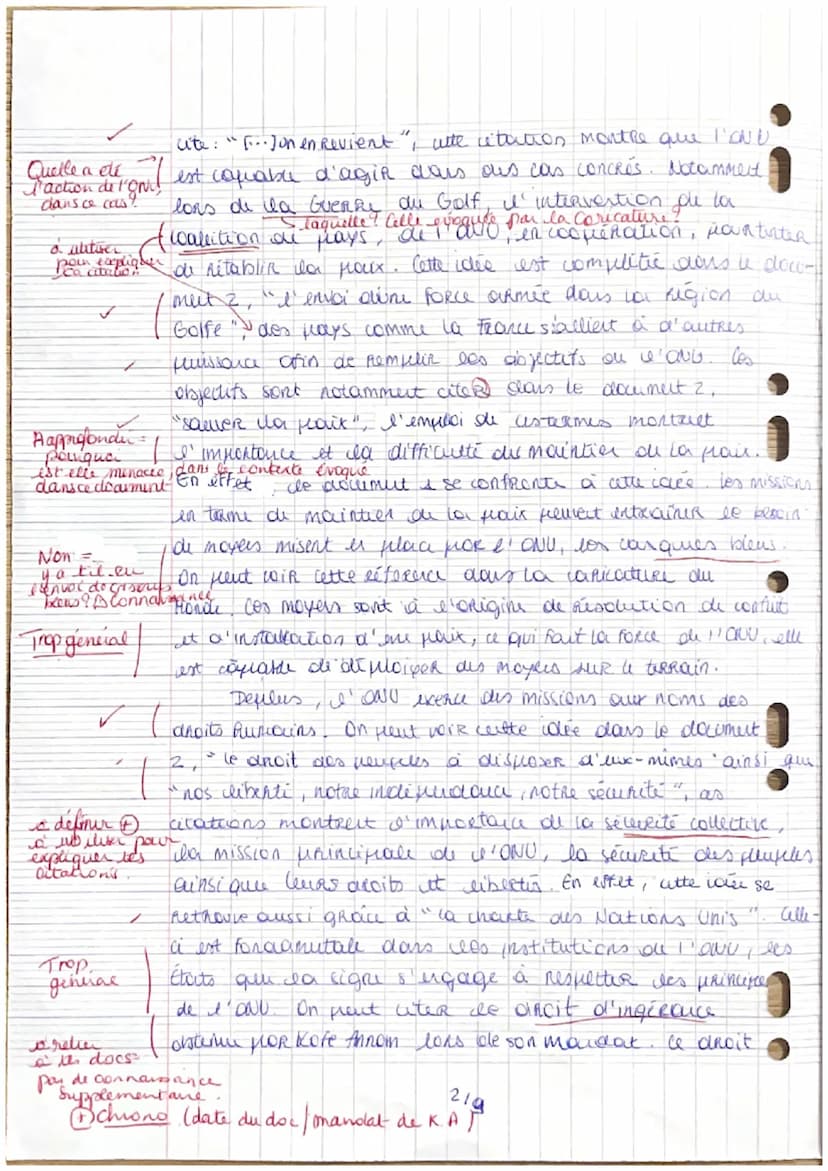 cite : " [...] on en revient ", cette citation montre que l'ONU
Quelle a été
l'action de l'ONU
dans ce cas ?
est capable d'agir dans des cas concrés. Notamment
lors de la Guerre du Golf, l'intervention de la
laquelle ? Celle évoquée par la caricature ?
coalition de pays, de l'ONU, en coopération, pour tenter
à utiliser
pour expliquer
la citation
de rétablir la paix. Cette idée est complétée dans le docu-
ment 2, "l'envoi d'une force armée dans la région du
Golfe", des pays comme la France s'allient à d'autres
puissance afin de remplir les objectifs de l'ONU. Ces
objectifs sont notamment citer dans le document 2,
"sauver la paix", l'emploi de ces termes montrent
A approfondir =
pourquoi
est-elle menacée dans le contexte évoqué
dans ce document
l'importance et la difficulté du maintien de la paix.
En effet, le document 1 se confronte à cette idée. Les missions
en terme de maintien de la paix peuvent entraîner le besoin
de moyens misent en place par l'ONU, les casques bleus.
Non =
y a t il eu
envoi de casques
bleus ? Connaissance
On peut voir cette référence dans la caricature du
Monde. Ces moyens sont à l'origine de résolution de conflit
Trop général
et d'installation d'une paix, ce qui fait la force de l'ONU, elle
est capable de déploiyer des moyens sur le terrain.
Deplus, l'ONU exerce des missions aux noms des
droits humains. On peut voir cette idée dans le document
2, "le droit des peuples à disposer d'eux-mêmes" ainsi que
"nos liberté, notre indépendance, notre sécurité", ces
à définir +
à utiliser pour
expliquer les
citations.
citations montrent l'importance de la sécurité collective,
la mission principale de l'ONU, la sécurité des peuples
ainsi que leurs droits et libertés. En effet, cette idée se
retrouve aussi grâce à "la charte des Nations Unis". Celle-
ci est fondamentale dans les institutions de l'ONU, les
Trop
général
États qui la signe s'engage à respecter les principes
de l'ONU. On peut citer le droit d'ingérance
obtenue par Kofe Annom lors de son mandat. Ce droit
à relier
à les docs =
pas de connaissance
supplémentaire.
+ chrono (date du doc / mandat de K.A)
2/9